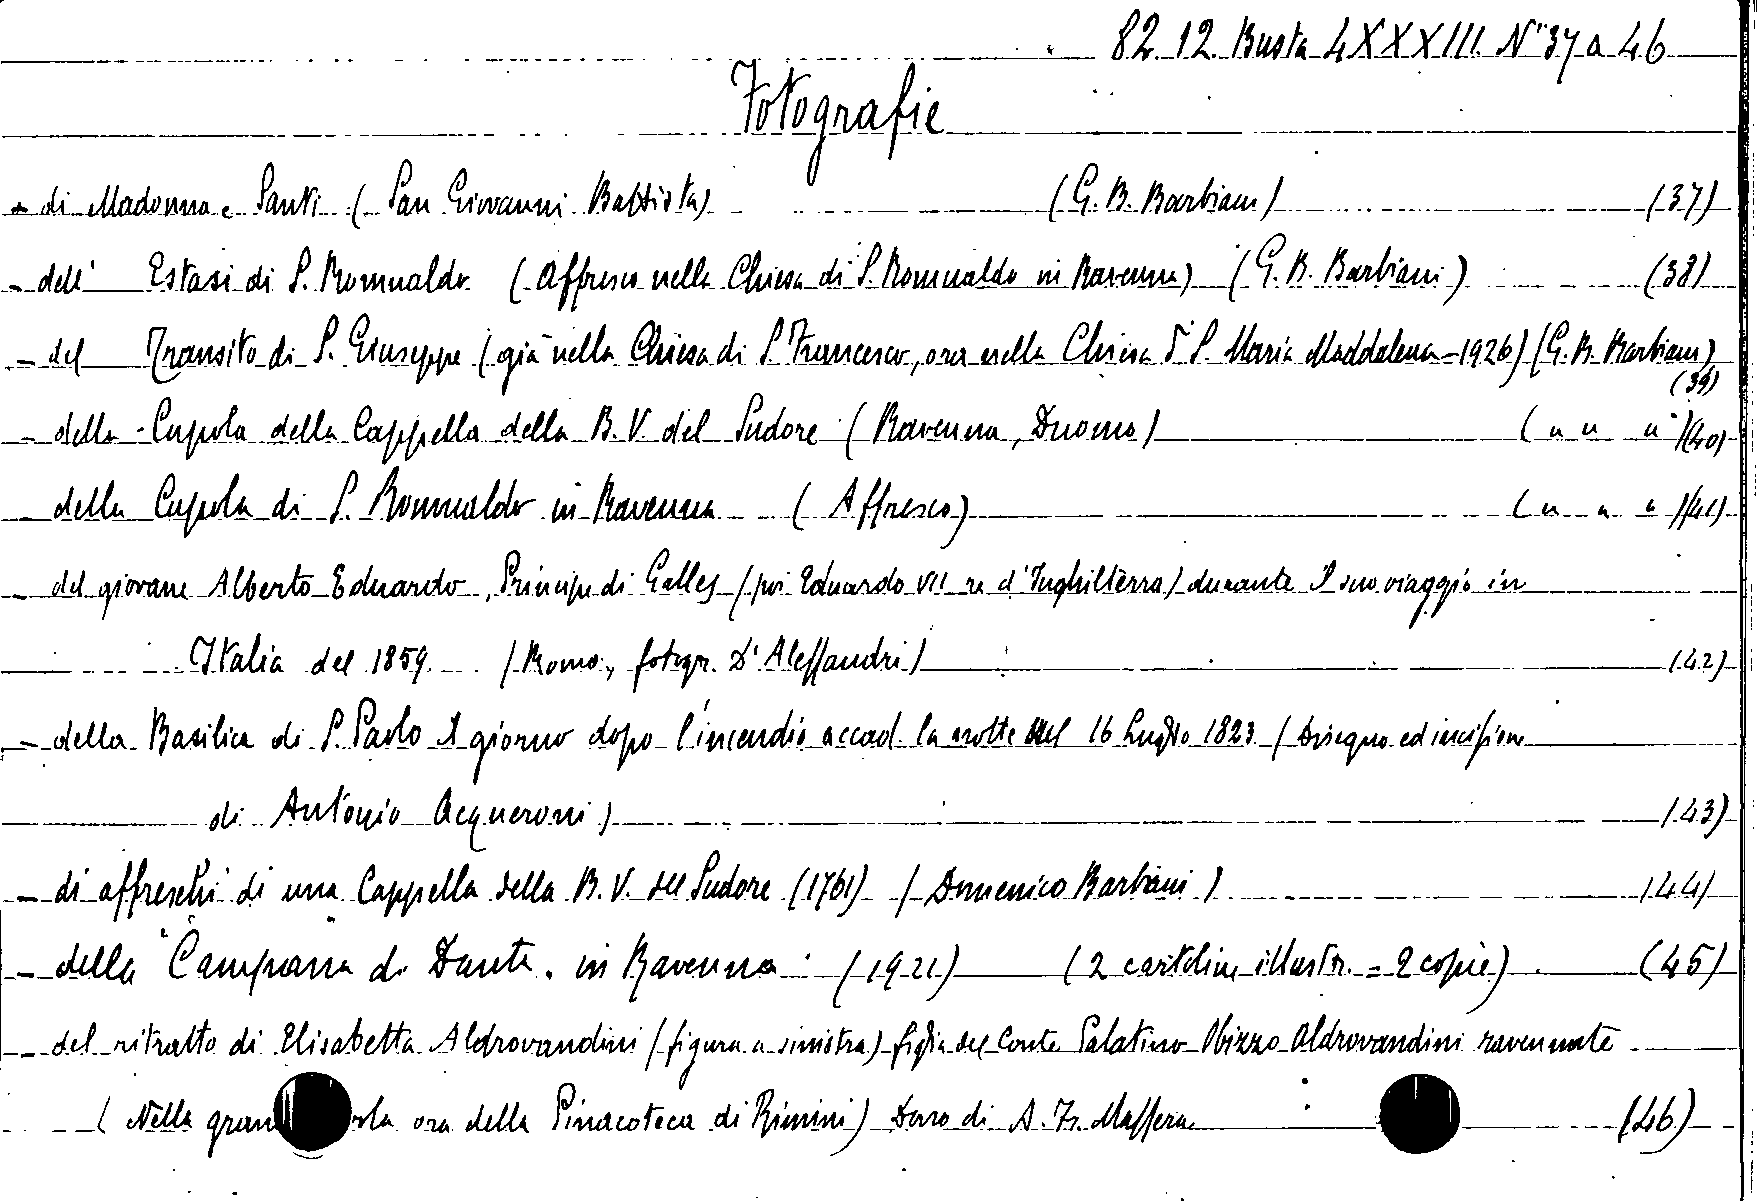 82.12. Busta LXXXIII. N.i 37 a 46
Fotografie
- di Madonna e Santi (San Giovanni Battista) (G. B. Barbiani) (37)
- dell' Estasi di S. Romualdo (Affresco nella Chiesa di S. Romualdo in Ravenna) (G. B. Barbiani) (38)
- del Transito di S. Giuseppe (già nella Chiesa di S. Francesco, ora nella Chiesa di S. Maria Maddalena - 1926) (G. B. Barbiani)
(39)
- della Cupola della Cappella della B. V. del Sudore (Ravenna, Duomo) (" " ") (40)
- della Cupola di S. Romualdo in Ravenna (Affresco) (" " ") (41)
- del giovane Alberto Eduardo, Principe di Galles (poi Eduardo VII re d'Inghilterra) durante il suo viaggio in
Italia del 1859. (Roma, fotogr. D'Alessandri) (42)
- della Basilica di S. Paolo il giorno dopo l'incendio accad. la notte del 16 Luglio 1823 (Disegno ed incisione
di Antonio Acqueroni) (43)
- di affreschi di una Cappella della B. V. del Sudore (1761) (Domenico Barbiani) (44)
- della "Campana di Dante" in Ravenna (1921) (2 cartoline illustr. = 2 copie) (45)
- del ritratto di Elisabetta Aldrovandini (figura a sinistra) figlia del Conte Palatino Obizzo Aldrovandini ravennate
(Nella gran ora della Pinacoteca di Rimini) Dono di A. Fr. Massera (46)